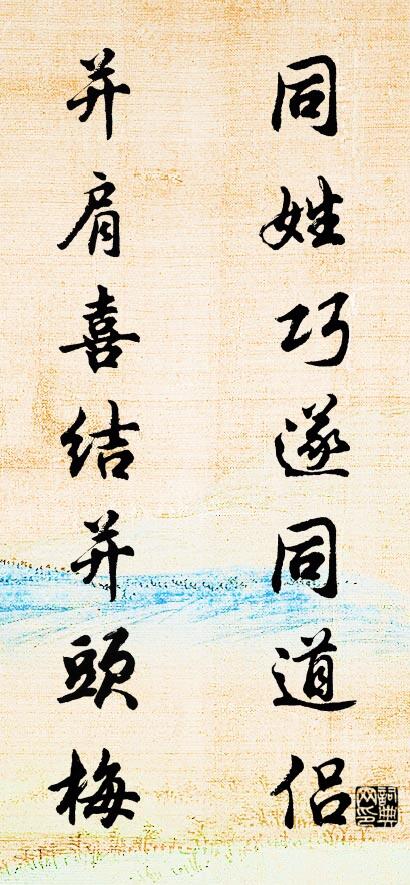 同姓巧遂同道侣
并肩喜结并頭梅
詞典網